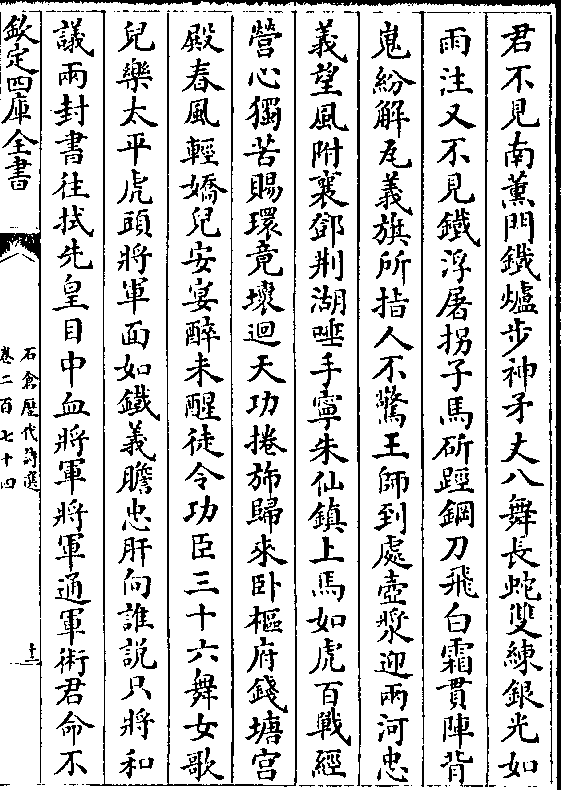 君不見南薰門鐵爐步神矛丈八舞長蛇雙練銀光如
雨注又不見鐵浮屠拐子馬斫踁鋼刀飛白霜貫陣背
嵬紛解瓦義旗所指人不驚王師到處壺漿迎兩河忠
義望風附襄鄧荆湖唾手寧朱仙鎮上馬如虎百戰經
營心獨苦賜環竟壞迴天功捲斾歸來卧樞府錢塘宫
殿春風輕嬌兒安宴醉未醒徒令功臣三十六舞女歌
兒樂太平虎頭將軍面如鐵義膽忠肝向誰説只將和
議兩封書往拭先皇目中血將軍將軍通軍術君命不
欽定四庫全書
石倉歷代詩選
卷二百七十四
十二